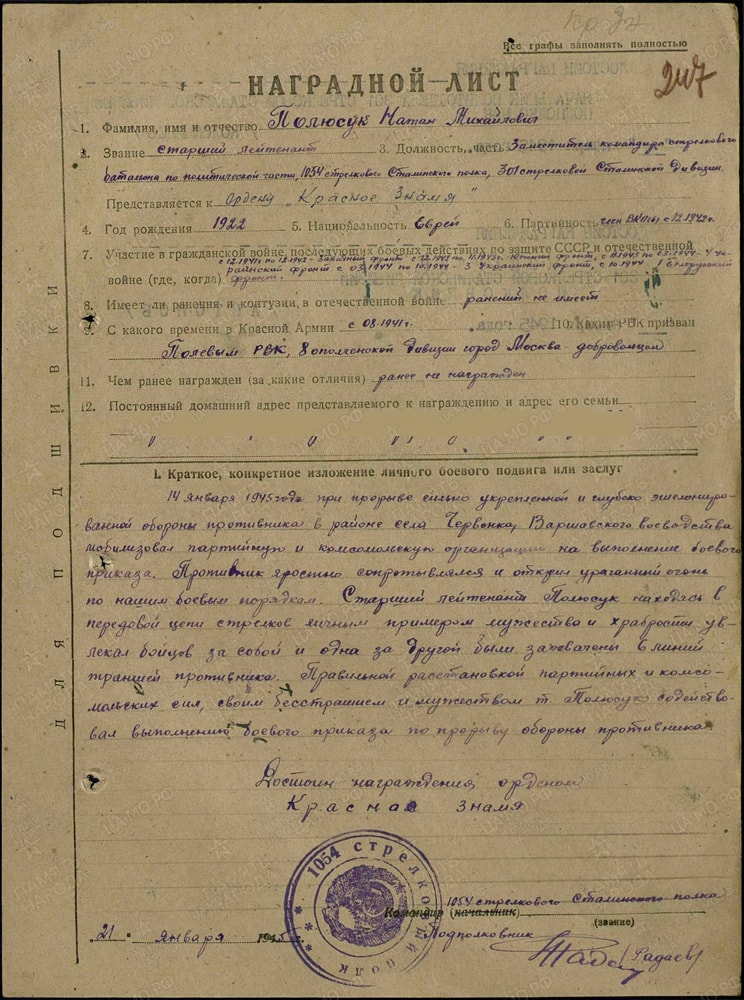 Все графы заполнять полностью
247
НАГРАДНОЙ ЛИСТ
1. Фамилия, имя и отчество Полюсук Натан Михайлович
2. Звание старший лейтенант 3. Должность, часть Заместитель командира стрелкового
батальона по политической части, 1054 стрелкового Сталинского полка, 301 стрелковой Сталинской дивизии.
Представляется к Ордену "Красное Знамя"
4. Год рождения 1922 5. Национальность Еврей 6. Партийность член ВКП(б) с 12.1942г.
7. Участие в гражданской войне, последующих боевых действиях по защите СССР и отечественной
с 12.1941г по 12.1942 - Западный фронт с 12.1942 по 11.1943г. Южный фронт, с 11.1943 по 03.1944 - 4 Ук-
раинский фронт с 03.1944 по 10.1944 - 3 Украинский фронт, с 10.1944 1 Белорусский
войне (где, когда) фронт.
8. Имеет ли ранения и контузии, в отечественной войне ранений не имеет
9. С какого времени в Красной Армии с 08.1941г. 10. Каким РВК призван
Полевым РВК, 8 ополченской дивизии город Москва - добровольцем
11. Чем ранее награжден (за какие отличия) ранее не награжден
12. Постоянный домашний адрес представляемого к награждению и адрес его семьи
" " " " " " "
I. Краткое, конкретное изложение личного боевого подвига или заслуг
14 января 1945 года при прорыве сильно укрепленной и глубоко эшелониро-
ванной обороны противника в районе села Червонка, Варшавского воеводства
мобилизовал партийную и комсомольскую организацию на выполнение боевого
приказа. Противник яростно сопротывлялся и открыл ураганный огонь
по нашим боевым порядкам. Старший лейтенант Полюсук находясь в
передовой цепи стрелков личным примером мужества и храбрости ув-
лекал бойцов за собой и одна за другой были захвачены 4 линии
траншей противника. Правильной расстановкой партийных и комсо-
мольских сил, своим бесстрашием и мужеством т. Полюсук содейство-
вал выполнению боевого приказа по прорыву обороны противника
Достоин награждения орденом
Красное знамя
1054 стрелковый полк
1054 стрелкового Сталинского полка
Командир (начальник)
(звание)
21 " января 1945 г.
Подполковник
(Радаев)
ДЛЯ ПОДШИВКИ